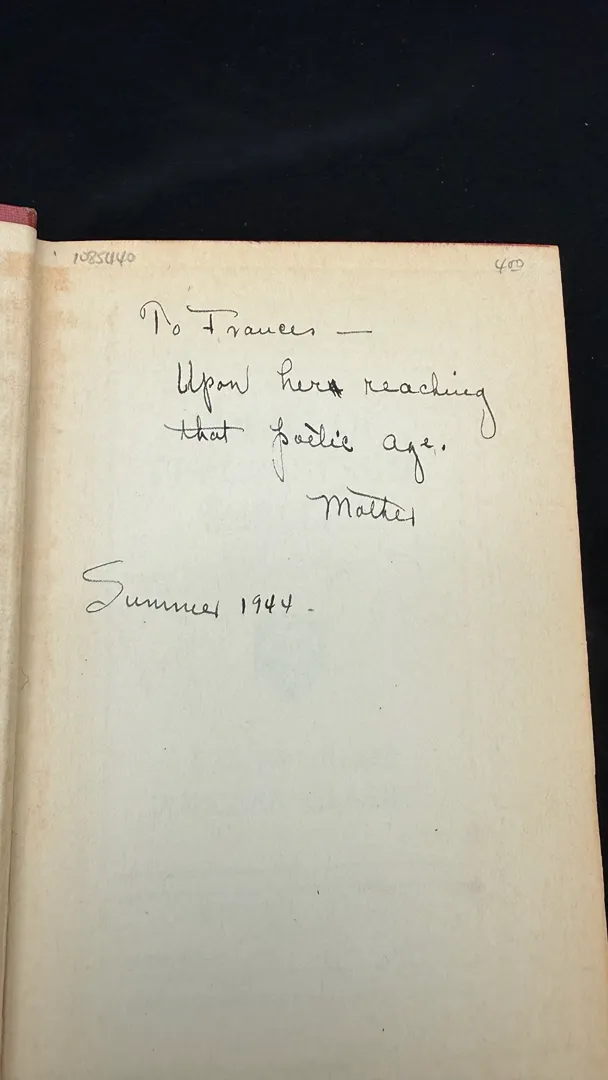 1085440
4.00
To Frances —
Upon her reaching
that poetic age.
Mother
Summer 1944.